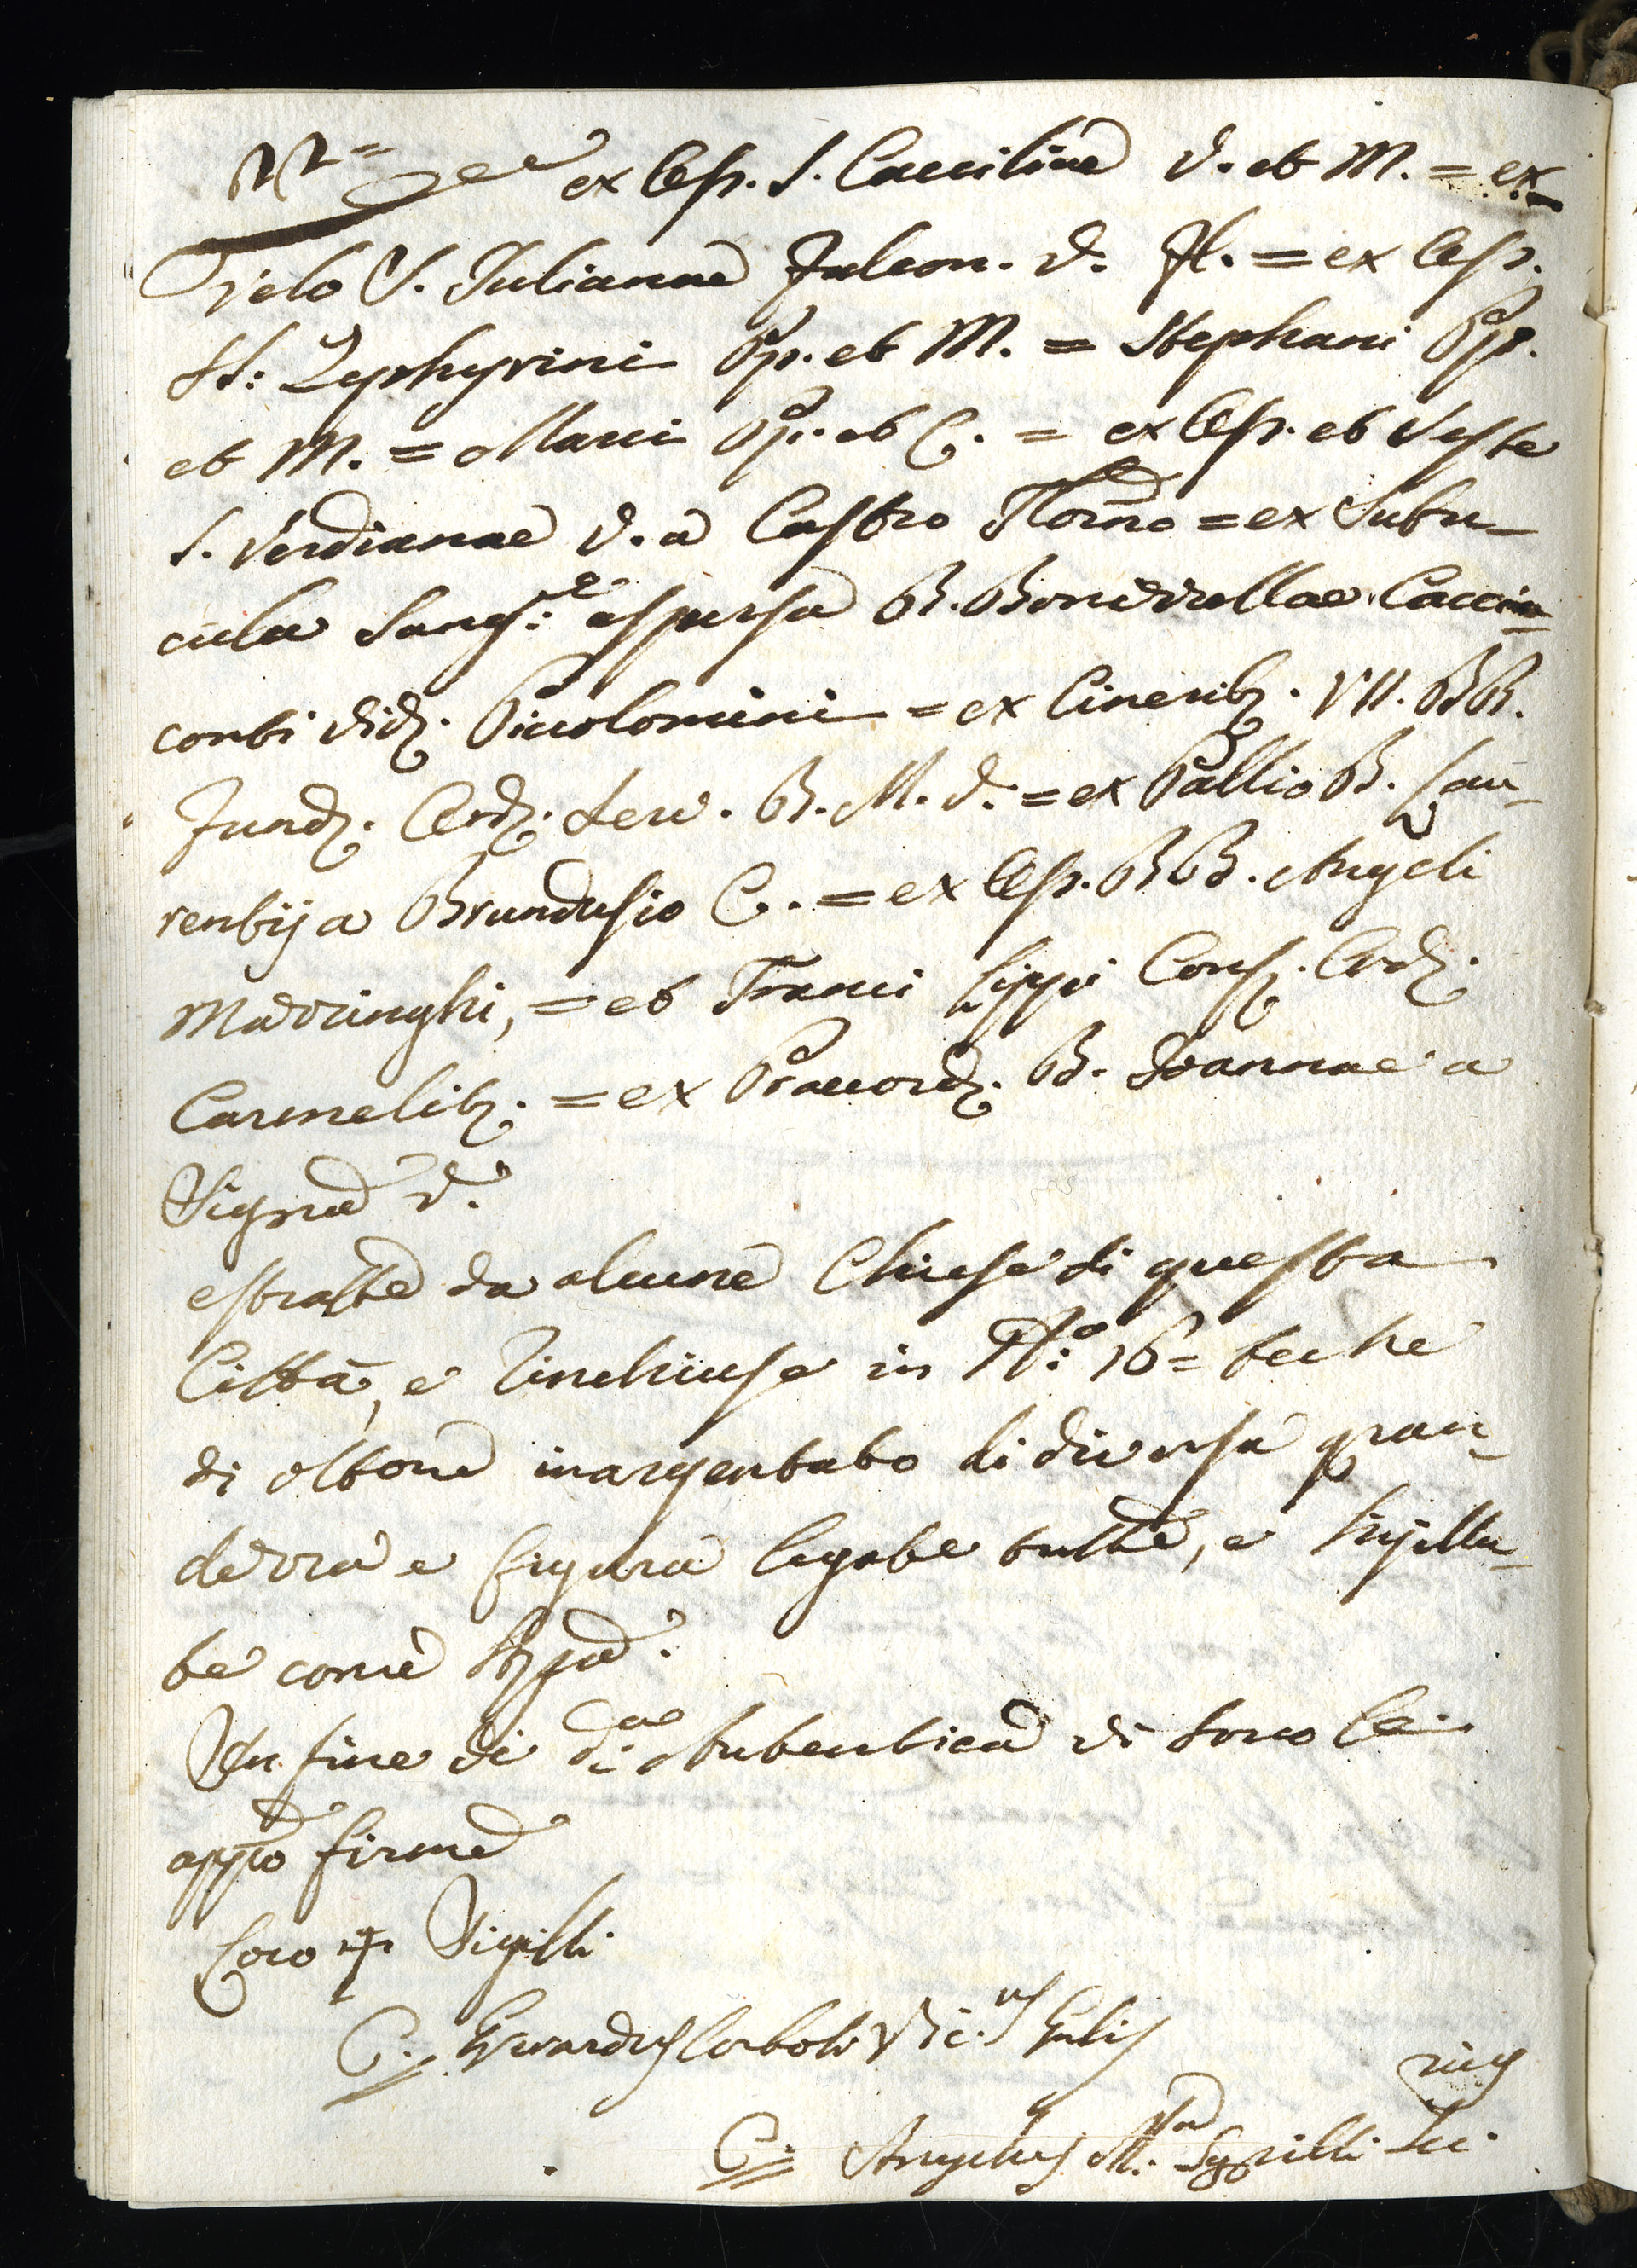 ex Oss. S. Caeciliae V. et M. = ex
Velo S. Julianae Falcon. V. Fl. = ex Oss.
SS: Zephyrini Pp. et M. = Stephani Pp.
et M. = Marci Pp. et C. = ex Oss. et Veste
S. Verdianae V. a Castro Florno = ex Subu-
cula Sang:e aspersa B. Bonizzellae Caccia-
conti Vid. Piccolomini = ex Cinerib. VII. BB.
Fund. Ord. Serv. B. M. V. = ex Pallio B. Lau-
rentij a Brundusio C. = ex Oss. BB. Angeli
Mazzinghi, = et Franci Lippi Conf. Ord.
Carmelit. = ex Praecord. B. Joannae a
Signa V.
estratte da alcune Chiese di questa
Città, e rinchiuse in N:o 16 = teche
di ottone inargentato di diversa gran-
dezza e figura legate tutte, e sigilla-
te come sopra.
In fine di d:a Autentica vi sono le
appo firme
Loco + Sigilli
C. Gherardus Corboli Vic.us Gnlis
C. Angelus M.a Sgrilli